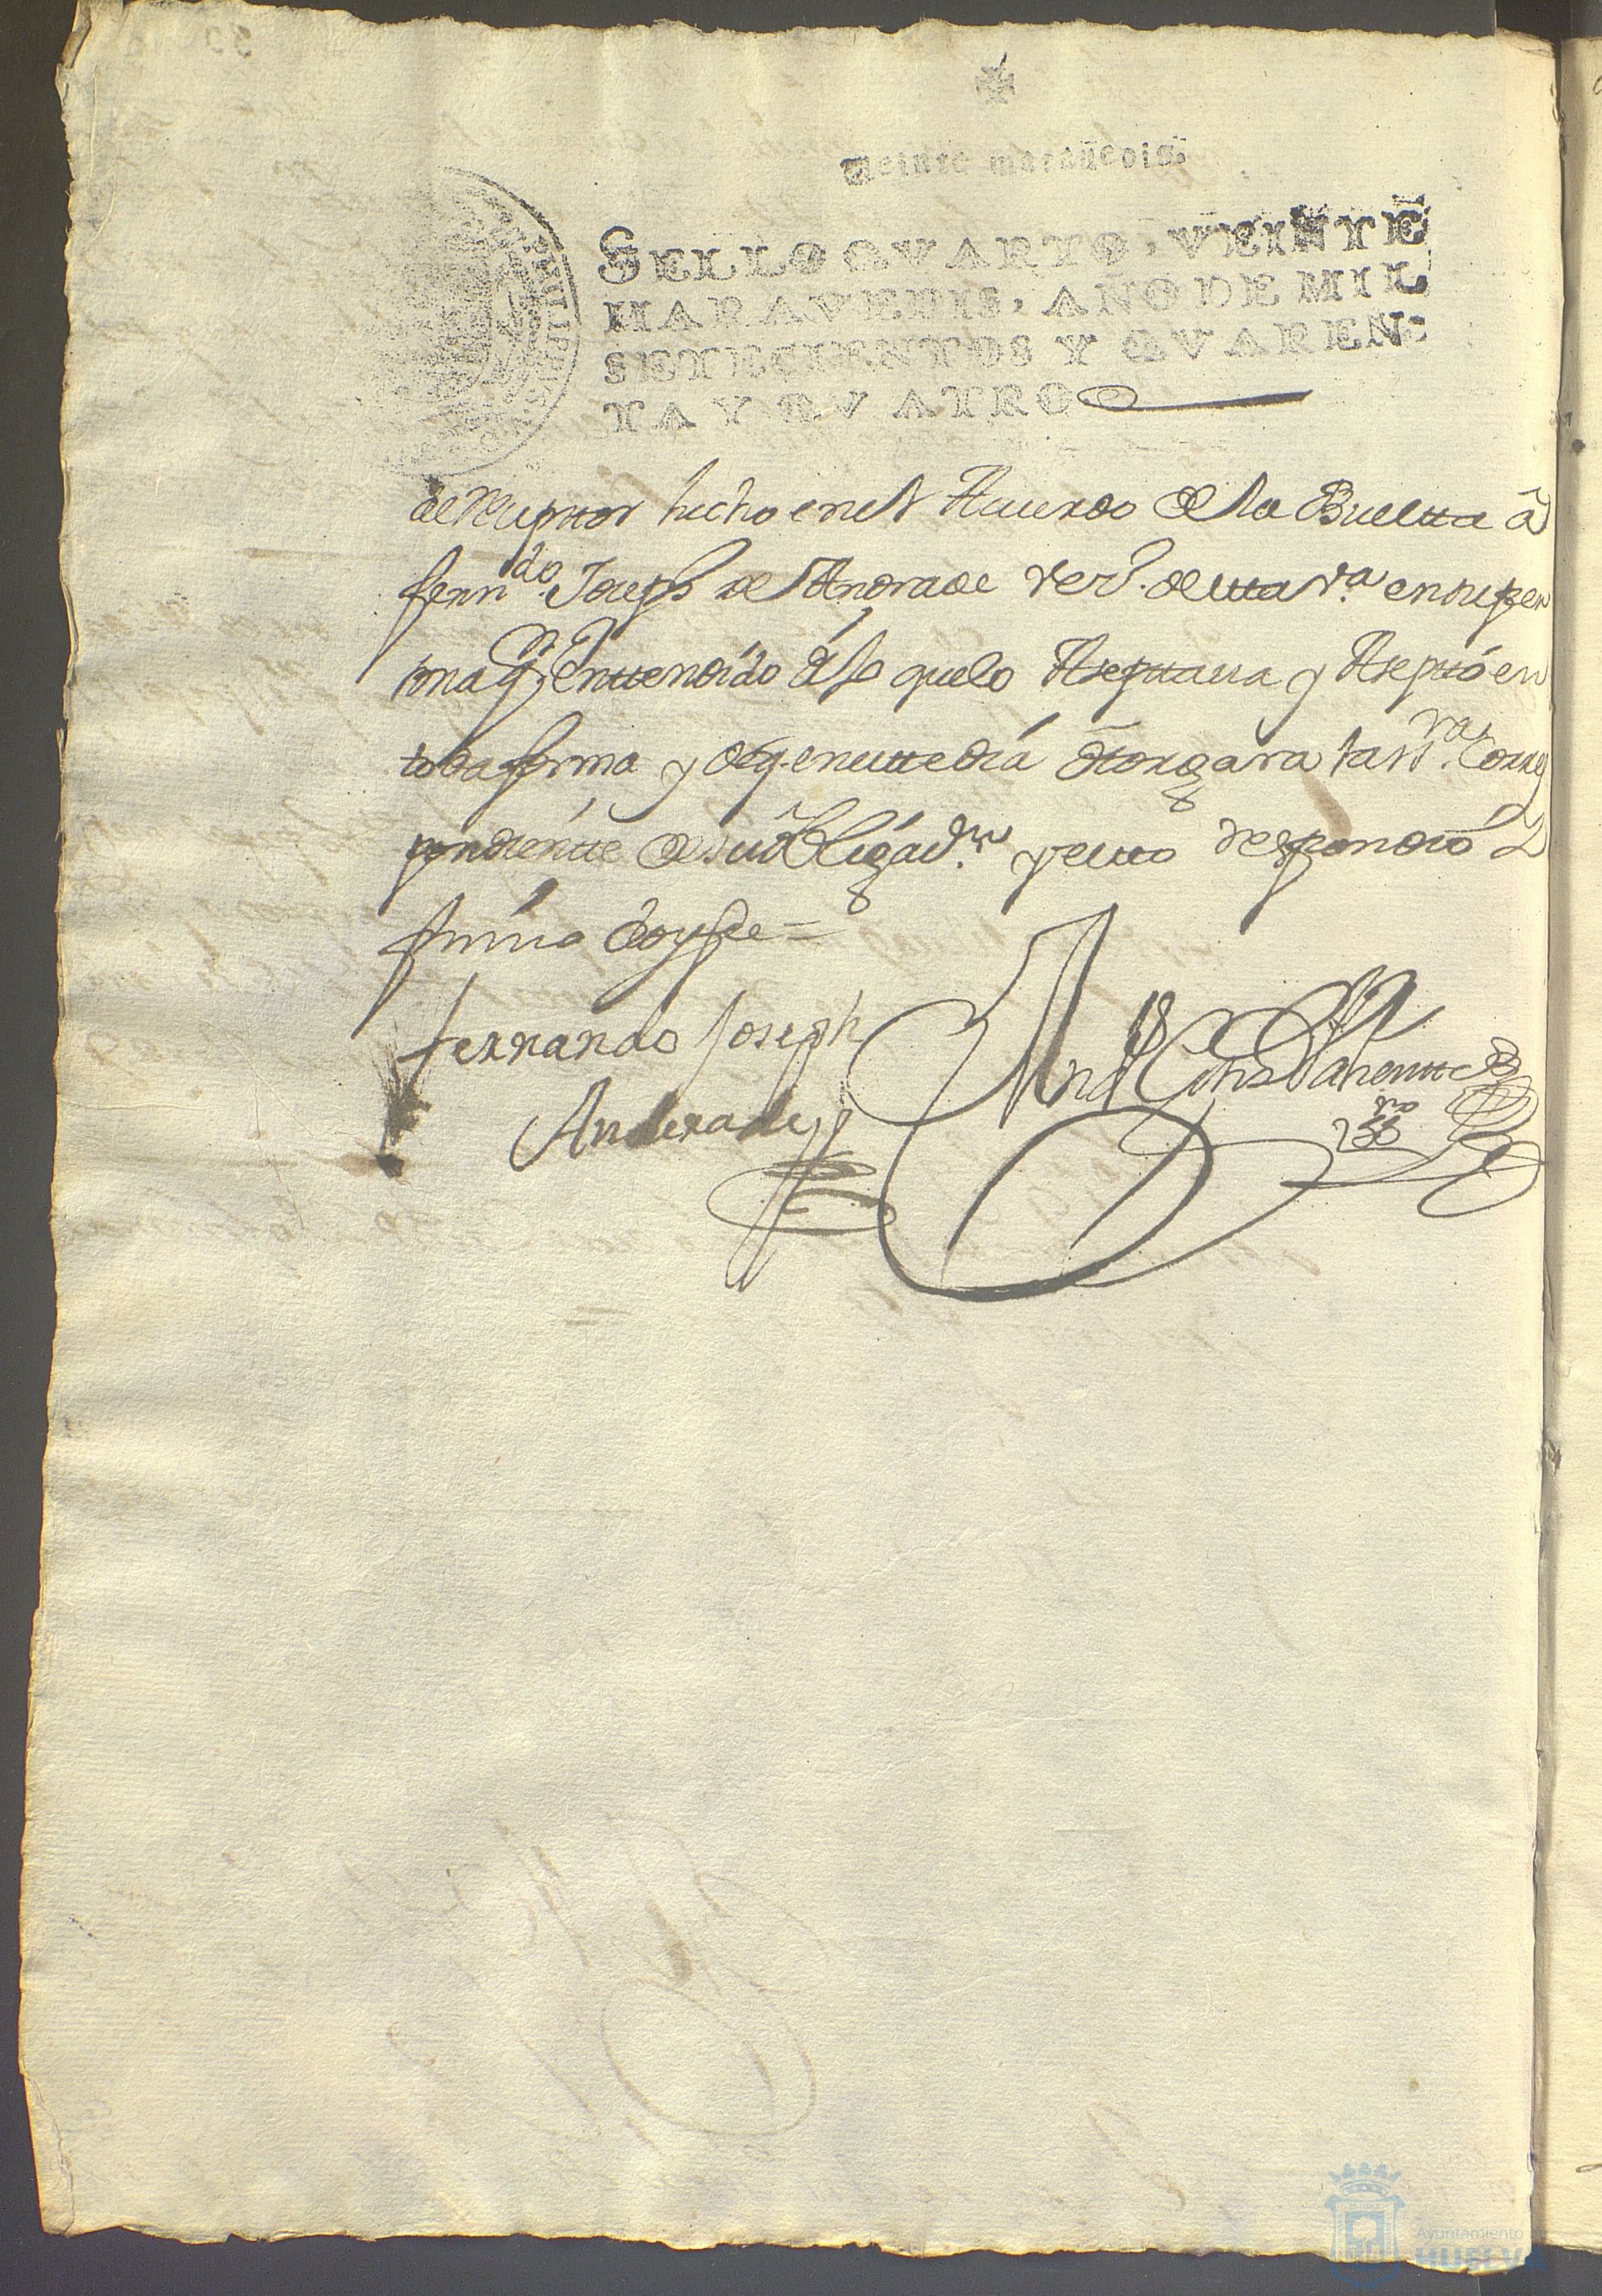 Veinte marauedis.
SELLO QVARTO, VEINTE
MARAVEDIS, AÑO DE MIL
SETECIENTOS Y QVAREN-
TA Y QVATRO
de Receptor hecho en el Acuerdo de la Buelta â
fern.do Joseph de Andrade vez.o de esta v.a en su per
sona q. entendido dijo que lo Aseptaua y Aseptó en
toda forma y Oy en este dia otorgara la ess.ra Corres
pondiente de su obligaz.on y esto respondió
firmó doy fe =
fernando Joseph
Anderade
Ayuntamiento de
HUELVA